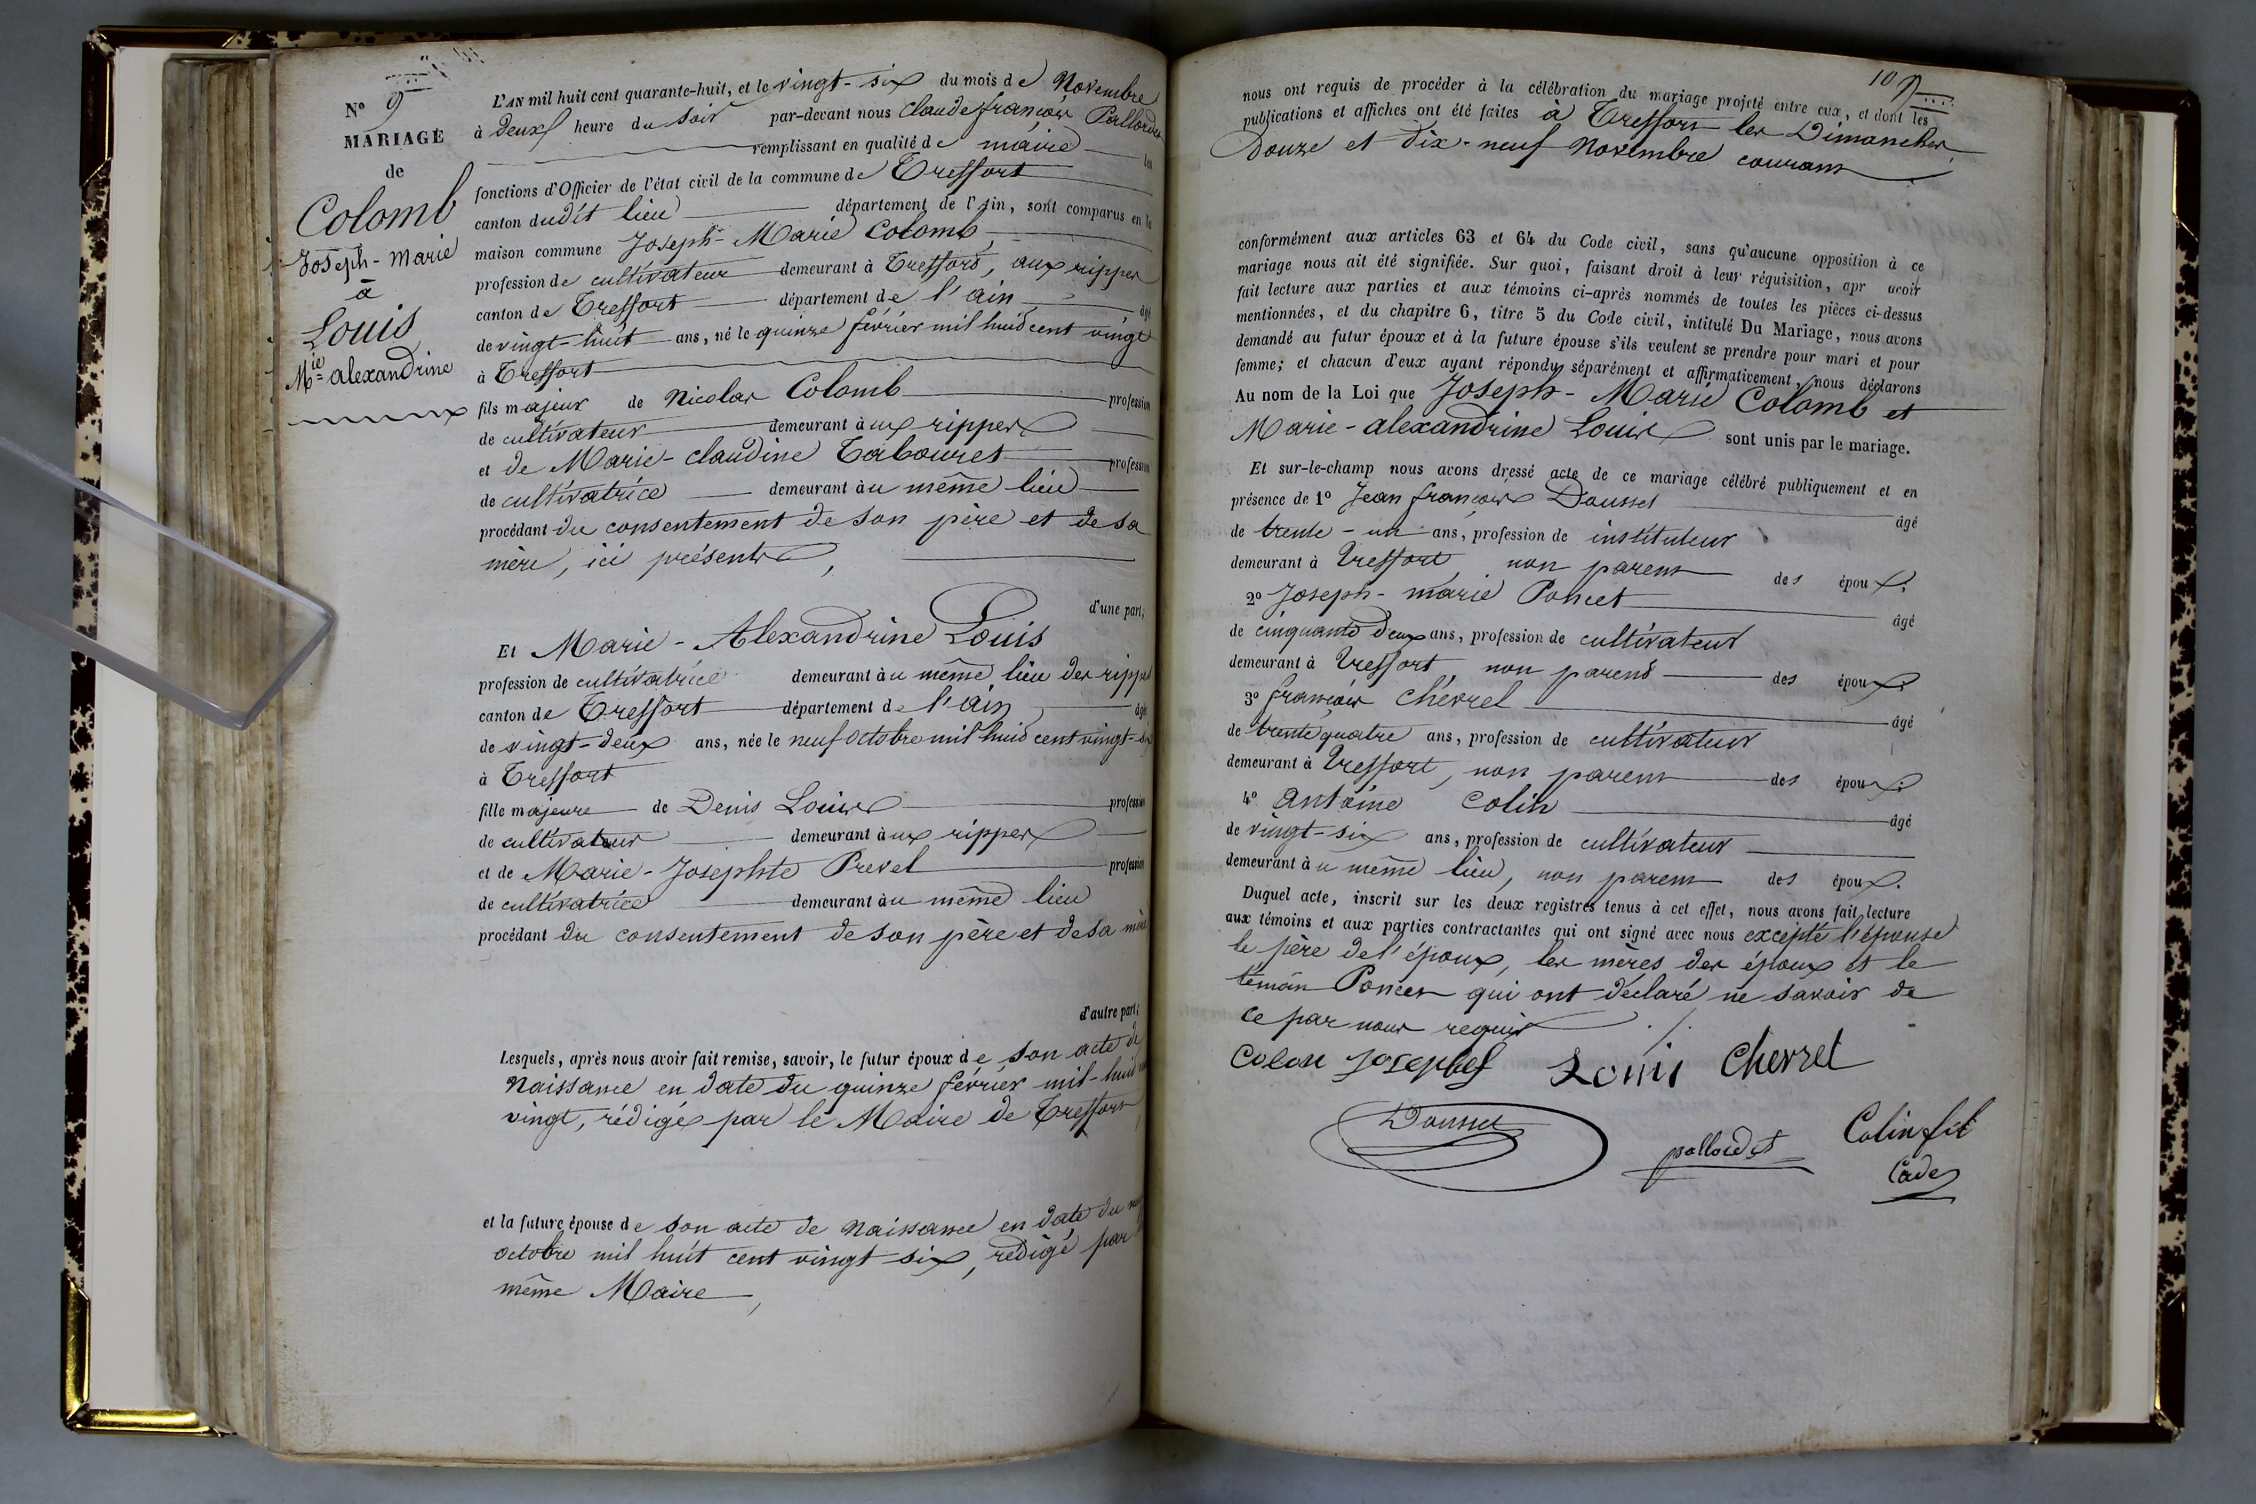 N° 9
MARIAGE
de
Colomb
Joseph-Marie
à
Louis
Mie alexandrine
L'AN mil huit cent quarante-huit, et le vingt-six du mois de Novembre
à deux heure du soir par-devant nous Claude françois
remplissant en qualité de maire les
fonctions d'Officier de l'état civil de la commune de Treffort
canton dudit lieu département de l'Ain, sont comparus en la
maison commune Joseph-Marie Colomb,
profession de cultivateur demeurant à Treffort, aux rippes
canton de Treffort département de l'ain âgé
de vingt-huit ans, né le quinze février mil huit cent vingt
à Treffort
fils majeur de Nicolas Colomb profession
de cultivateur demeurant aux rippes
et de Marie-claudine Tabouret profession
de cultivatrice demeurant au même lieu
procédant du consentement de son père et de sa
mère, ici présents,
d'une part;
Et Marie-Alexandrine Louis
profession de cultivatrice demeurant au même lieu des rippes
canton de Treffort département de l'ain, âgée
de vingt-deux ans, née le neuf octobre mil huit cent vingt-six
à Treffort
fille majeure de Denis Louis profession
de cultivateur demeurant aux rippes
et de Marie-Josephte Prevel profession
de cultivatrice demeurant au même lieu
procédant du consentement de son père et de sa mère
d'autre part;
Lesquels, après nous avoir fait remise, savoir, le futur époux de son acte de
Naissance en date du quinze février mil-huit cent
vingt, rédigé par le Maire de Treffort
et la future épouse de son acte de naissance en date du neuf
octobre mil huit cent vingt six, rédigé par le
même Maire,
109
nous ont requis de procéder à la célébration du mariage projeté entre eux, et dont les
publications et affiches ont été faites à Treffort les Dimanches
Douze et Dix-neuf Novembre courant
conformément aux articles 63 et 64 du Code civil, sans qu'aucune opposition à ce
mariage nous ait été signifiée. Sur quoi, faisant droit à leur réquisition, apr avoir
fait lecture aux parties et aux témoins ci-après nommés de toutes les pièces ci-dessus
mentionnées, et du chapitre 6, titre 5 du Code civil, intitulé Du Mariage, nous avons
demandé au futur époux et à la future épouse s'ils veulent se prendre pour mari et pour
femme; et chacun d'eux ayant répondu séparément et affirmativement, nous déclarons
Au nom de la Loi que Joseph-Marie Colomb et
Marie-alexandrine Louis sont unis par le mariage.
Et sur-le-champ nous avons dressé acte de ce mariage célébré publiquement et en
présence de 1° Jean françois Dousset âgé
de trente-un ans, profession de instituteur
demeurant à Treffort, non parent des époux.
2° Joseph-marie Poncet âgé
de cinquante deux ans, profession de cultivateur
demeurant à Treffort non parent des époux.
3° françois Chevrel âgé
de trente quatre ans, profession de cultivateur
demeurant à Treffort, non parent des époux.
4° antoine Colin âgé
de vingt-six ans, profession de cultivateur
demeurant au même lieu, non parent des époux.
Duquel acte, inscrit sur les deux registres tenus à cet effet, nous avons fait lecture
aux témoins et aux parties contractantes qui ont signé avec nous excepté l'épouse
le père de l'époux, les mères des époux et le
témoin Poncet qui ont déclaré ne savoir de
ce par nous requis ./.
Colon Joseph Louis Chevrel
Dousset
Colin fil
Cade